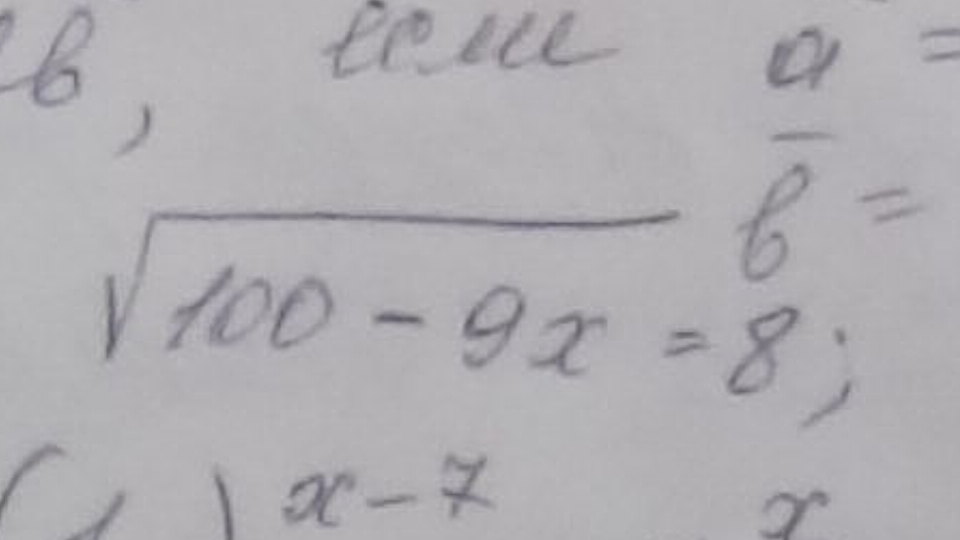 в, если a =
b =
√100 - 9x = 8;
x - 7 x